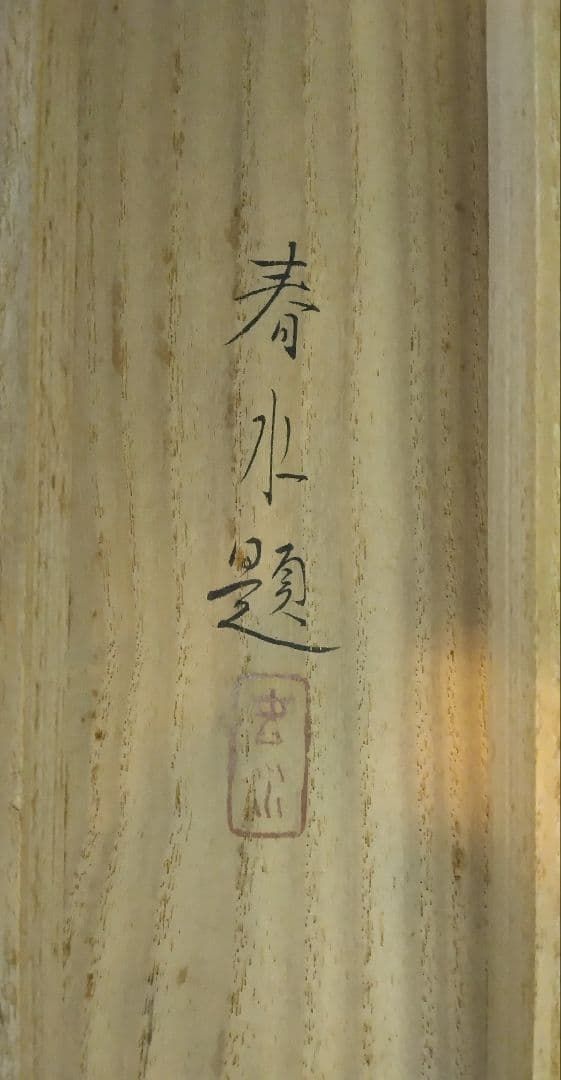 春水題